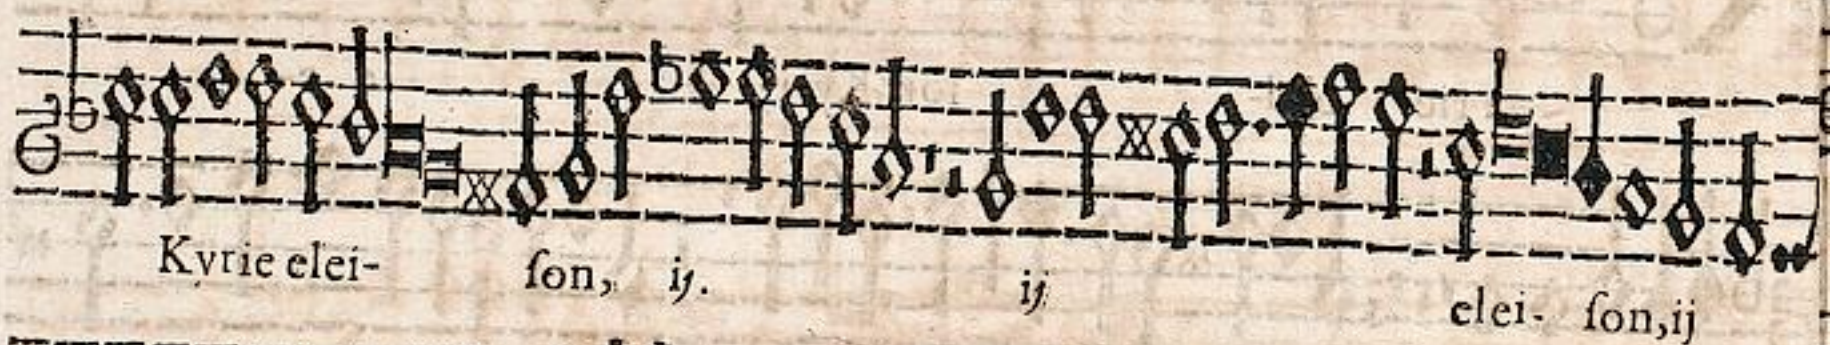 Kyrie elei- ſon, ij. ij elei- ſon,ij